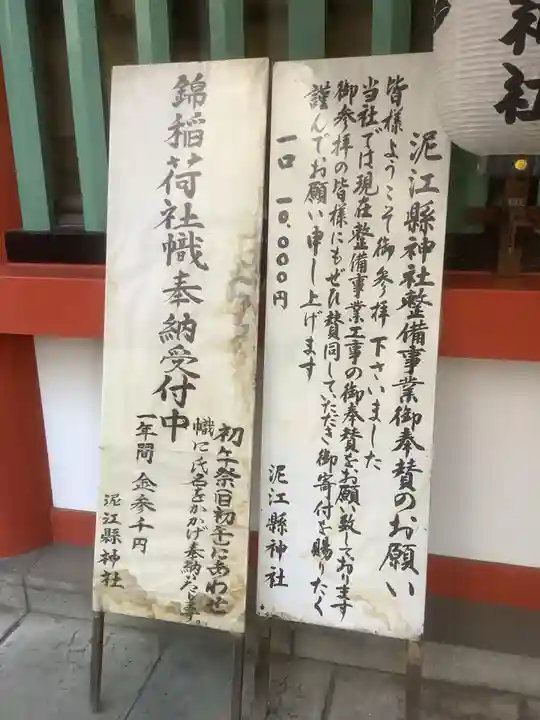 神社
泥江縣神社整備事業御奉賛のお願い
皆様ようこそ御参拝下さいました
当社では現在整備事業工事の御奉賛をお願い致しております
御参拝の皆様にもぜひ賛同していただき御寄付を賜りたく
謹んでお願い申し上げます
一口 一〇.〇〇〇円
泥江縣神社
錦稲荷社幟奉納受付中
初午祭(旧初午)にあわせ
幟に氏名をかかげ奉納いたします
一年間 金参千円
泥江縣神社